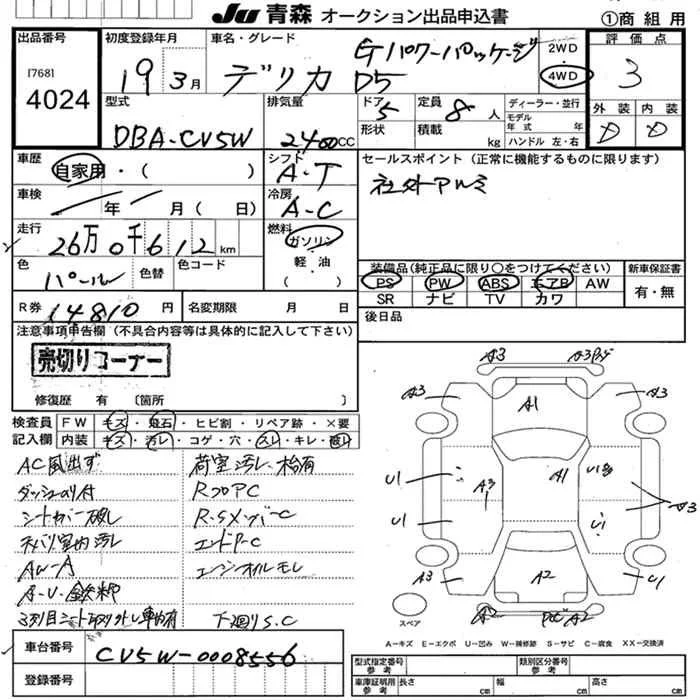 JU 青森 オークション出品申込書
①商組用
出品番号
[768]
4024
初度登録年月
19 3月
車名・グレード
デリカ D5
Gパワーパッケージ
2WD
4WD
評価点
3
外装 内装
D D
型式
DBA-CV5W
排気量
2400cc
ドア
5
形状
定員
8人
積載
kg
ディーラー・並行
モデル
年式 年
ハンドル 左・右
車歴
自家用・( )
シフト
A-T
セールスポイント(正常に機能するものに限ります)
社外アルミ
車検
年 月( 日)
冷房
A-C
走行
26万0千612km
燃料
ガソリン
軽・油
( )
色
パール
色替
色コード
装備品(純正品に限り○をつけてください)
PS PW ABS エアB AW
SR ナビ TV カワ
新車保証書
有・無
R券 14810円
名変期限 月 日
後日品
注意事項申告欄(不具合内容等は具体的に記入して下さい)
売切りコーナー
修復歴 有 〔箇所 〕
検査員
記入欄
FW キズ・飛石・ヒビ割・リペア跡・×要
内装 キズ・汚レ・コゲ・穴・スレ・キレ・破レ
AC風出ず
シートカバー破レ
AW-A
A-U-
荷室汚レ・
RフロアC
R-SメンバーC
エンドP-C
エンジンオイルモレ
下廻りS.C
車台番号
CV5W-0008556
登録番号
A3 A3
A3 A1 A3
U1 A3 A1
U1 U1 A3
A3 A2 C1
A2
スペア
A-キズ E-エクボ U-凹み W-補修跡 S-サビ C-腐食 XX-交換済
型式指定番号
参考
類別区分番号
参考
車庫証明用
参考
長さ cm 幅 cm 高さ cm